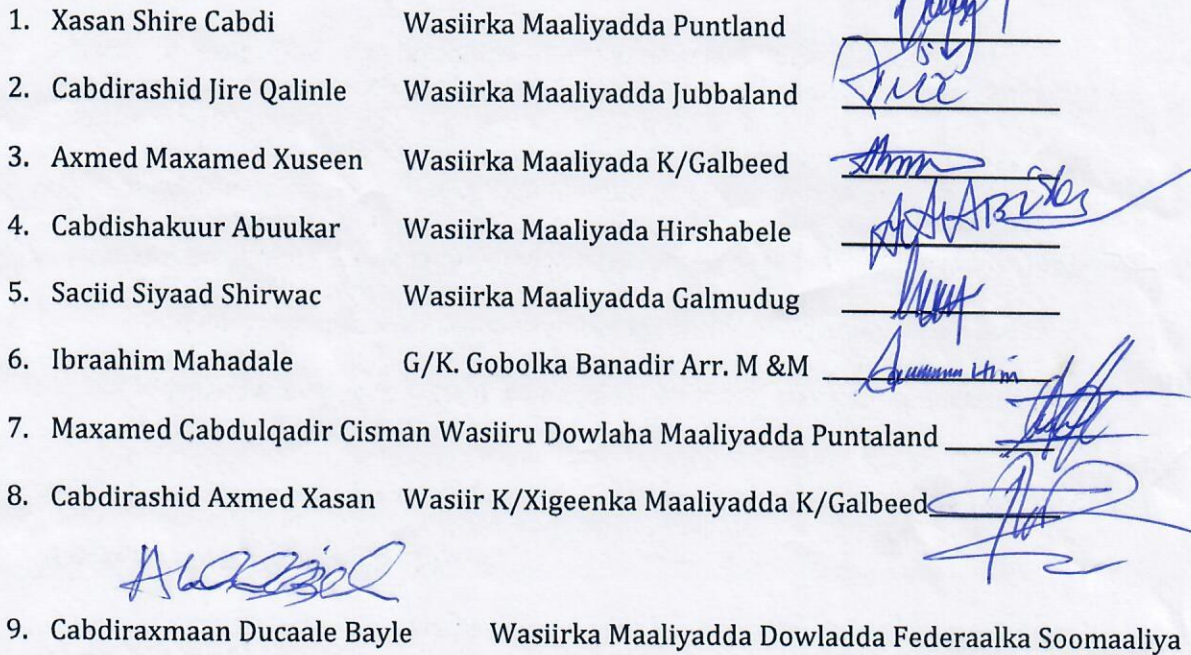 1. Xasan Shire Cabdi Wasiirka Maaliyadda Puntland
2. Cabdirashid Jire Qalinle Wasiirka Maaliyadda Jubbaland
3. Axmed Maxamed Xuseen Wasiirka Maaliyada K/Galbeed
4. Cabdishakuur Abuukar Wasiirka Maaliyada Hirshabele
5. Saciid Siyaad Shirwac Wasiirka Maaliyadda Galmudug
6. Ibraahim Mahadale G/K. Gobolka Banadir Arr. M &M
7. Maxamed Cabdulqadir Cisman Wasiiru Dowlaha Maaliyadda Puntaland
8. Cabdirashid Axmed Xasan Wasiir K/Xigeenka Maaliyadda K/Galbeed
9. Cabdiraxmaan Ducaale Bayle Wasiirka Maaliyadda Dowladda Federaalka Soomaaliya